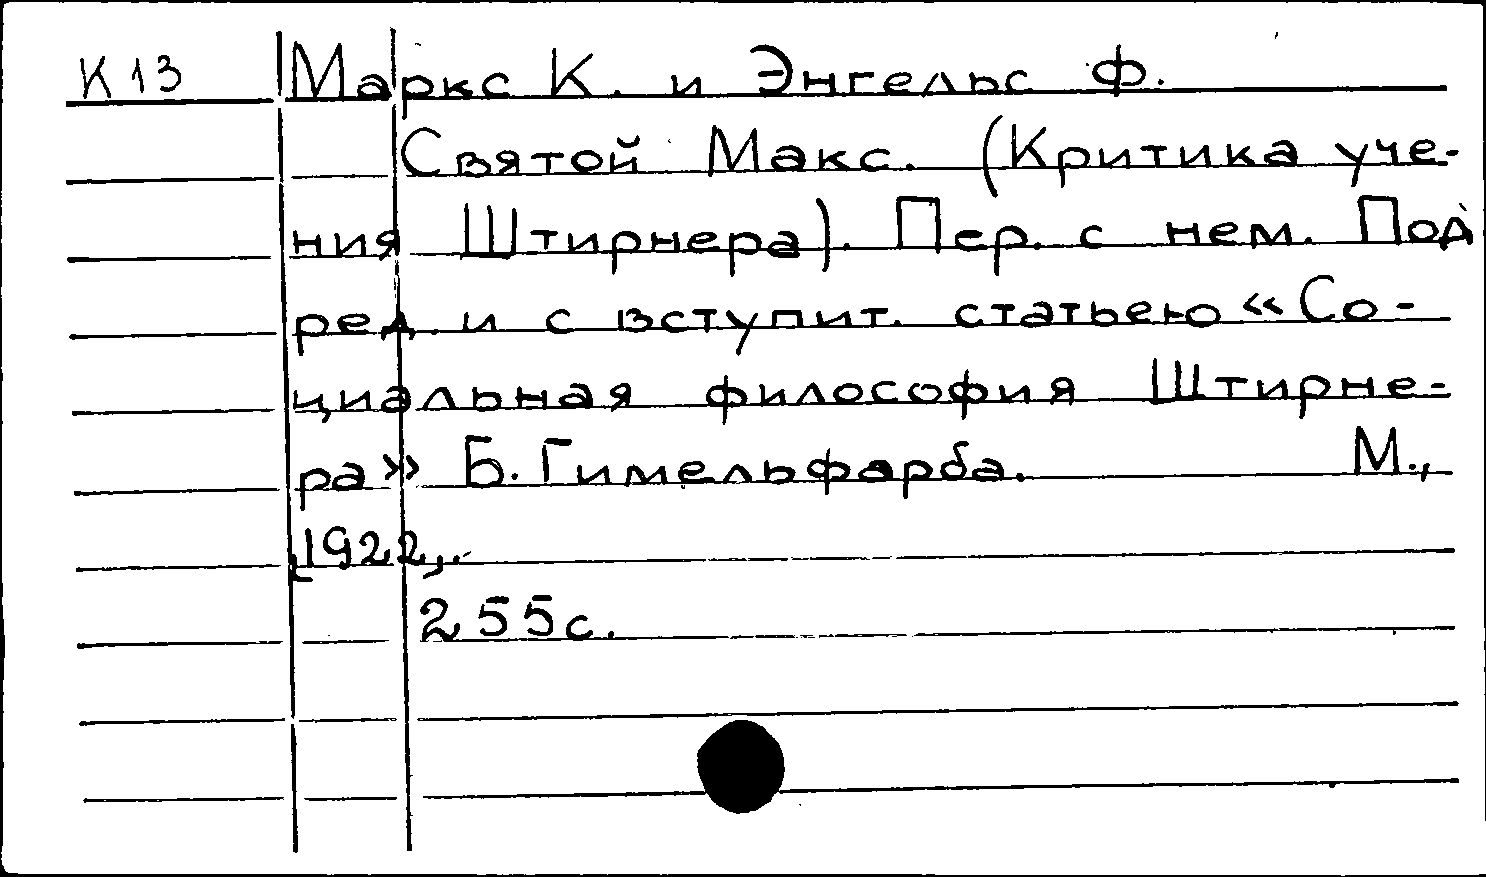 К 13 Маркс К. и Энгельс Ф.
Святой Макс. (Критика уче-
ния Штирнера). Пер. с нем. Под
ред. и с вступит. статьею «Со-
циальная философия Штирне-
ра» Б. Гимельфарба. М.,
1922,.
255 с.